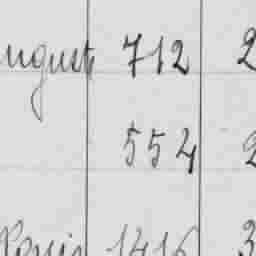 auguste 712 2
554 2
Louis 1416 3